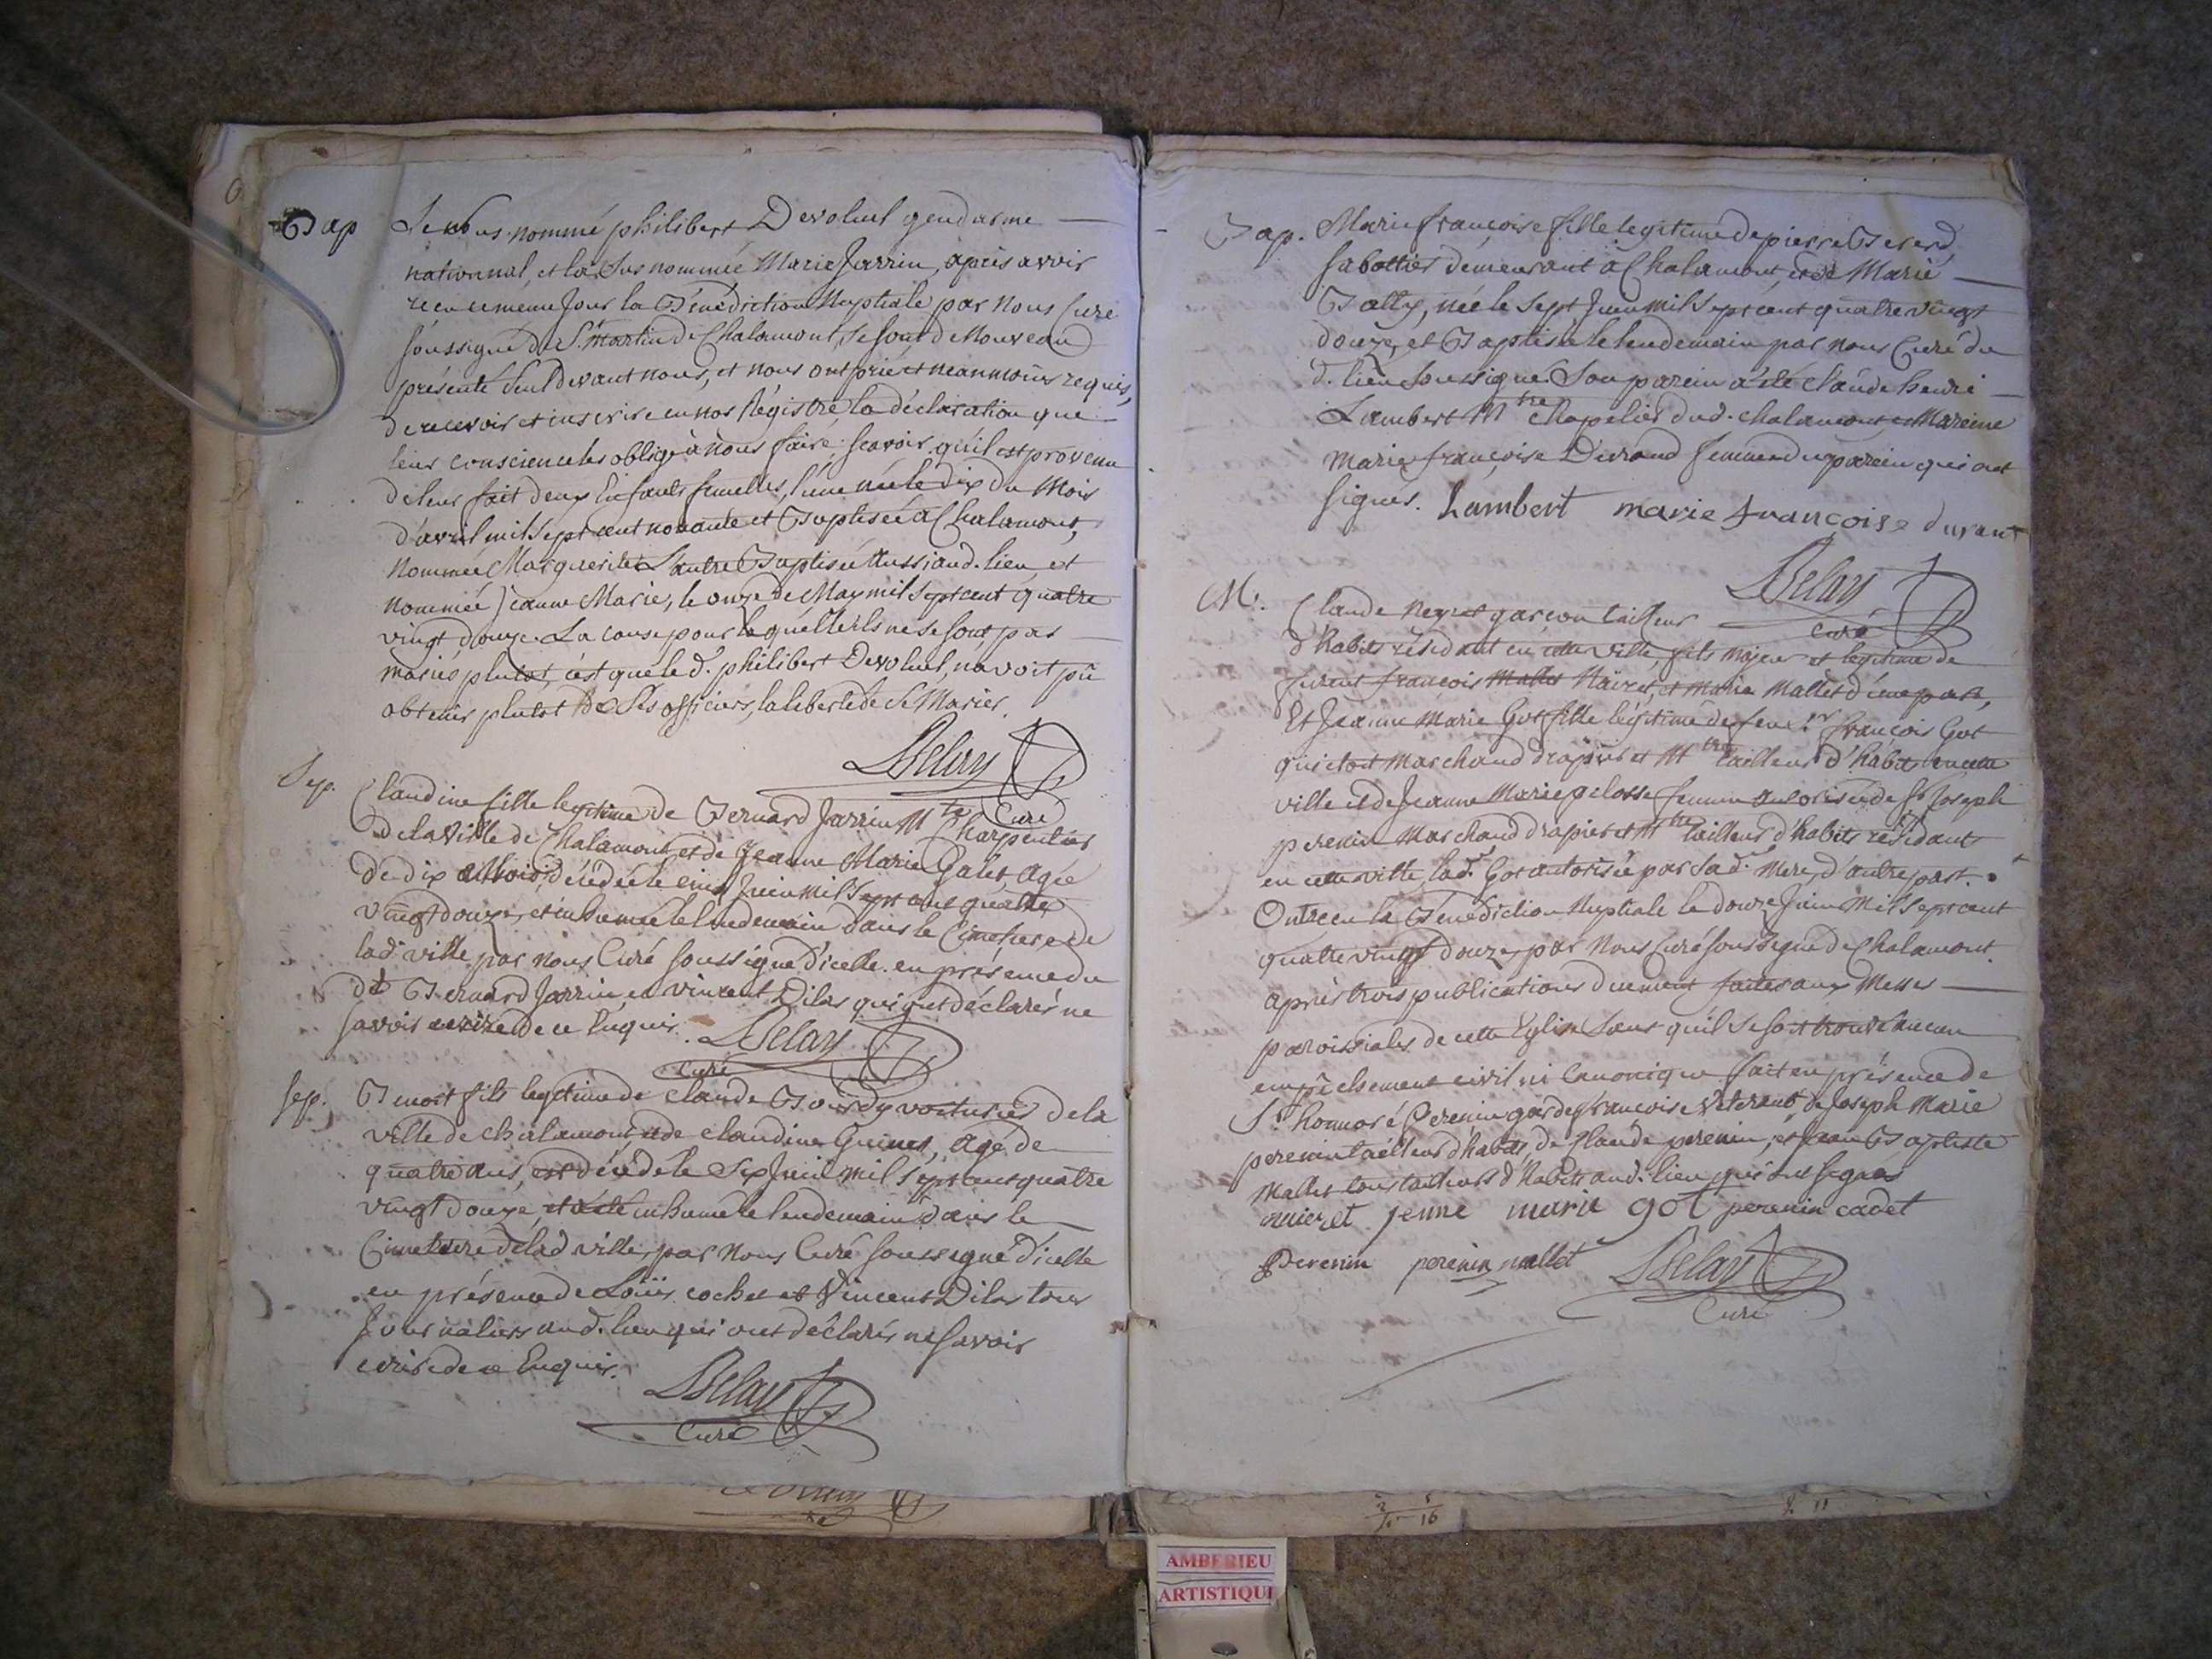 Bap
Le sus nommé philibert Devoluel gendarme
nationnal, et la sus nommée Marie Jarrin, après avoir
recu ce meme Jour la Bénédiction Nuptiale par Nous Curé
soussigné de St. Martin de Chalamont, se sont de Nouveau
présenté seul devant nous, et nous ont prié et neanmoins requis,
de recevoir et inscrire en nos Régistre la déclaration que
leur conscience les oblige à nous faire; scavoir qu'il est provenu
de leur fait deux Enfants femelles, l'une née le dix du Mois
d'avril mil sept cent nonante et Baptisée a Chalamont,
Nommée Marguerite. L'autre Baptisée Aussi aud. lieu et
nommée Jeanne Marie, le onze de May mil sept cent quatre
vingt douze. La cause pour laquelle ils ne se sont pas
mariés plutot, c'est que le d. philibert Devoluel, n'avoit pû
obtenir plutot de Ses officiers, la liberté de se Marier.
Belay
Curé
Sep.
Claudine fille legitime de Bernard Jarrin Mtre Charpentier
de la Ville de Chalamont et de Jeanne Marie Galet, Agée
de dix Mois, décédée le cinq Juin mil sept cent quatre
vingt douze, et inhumée le lendemain dans le Cimetiere de
lad. ville par nous Curé soussigné d'icelle. en présence du
dt Bernard Jarrin et vincent Dilas qui ont déclarés ne
savoir ecrire de ce Enquis. Belay
Curé
Sep.
Benoit fils legitime de Claude Bourdy voiturier de la
ville de Chalamont et de Claudine Guinet, agé de
quatre ans, est décédé le Six Juin mil sept cent quatre
vingt douze, et a été inhumé le lendemain dans le
Cimetiere de lad ville, par Nous Curé soussigné d'icelle
en présence de Loüis cochet et Vincent Dilas tous
Journaliers aud. lieu qui ont déclarés ne savoir
ecrire de ce Enquis.
Belay
Curé
Bap.
Marie françoise fille legitime de pierre Bererd
sabottier demeurant à Chalamont, et de Marie
Batty, née le sept Juin mil sept cent quatre vingt
douze, et Baptisée le lendemain par nous Curé du
d. lieu soussigné. Son parein a été claude henri
Lambert Mtre Chapelier dud. chalamont et Mareine
Marie françoise Durand femme du parein qui ont
signés. Lambert marie françoise durant
Belay
Curé
M.
Claude garcon tailleur
d'habits résidant en cette ville, fils majeur et legitime de
françois et Marie Mallet d'une part,
Et Jeanne Marie Got fille légitime de feu Sr françois Got
qui etoit Marchand drapier et Mtre tailleur d'habit en cette
ville et de Jeanne Marie pelosse femme autorisée de Sr Joseph
perenin Marchand drapier et Mtre tailleur d'habits résidant
en cette ville, lad. Got autorisée par sad. Mere, d'autre part.
Ont recu la Bénédiction Nuptiale le douze Juin Mil sept cent
quatre vingt douze, par Nous Curé soussigné de Chalamont.
après trois publications duement faites aux Messes
paroissiales de cette Eglise sans qu'il se soit trouvé aucun
empêchement civil ni Canonique fait en présence de
Sr honnoré Perenin garde françoise Veterant, de Joseph Marie
perenin tailleur d'habits, de Claude perenin, et Jean Baptiste
Mallet tous tailleurs d'habits aud. lieu qui ont signés
jenne marie got perenin cadet
Perenin perenin mallet Belay
Curé
AMBERIEU
ARTISTIQUE